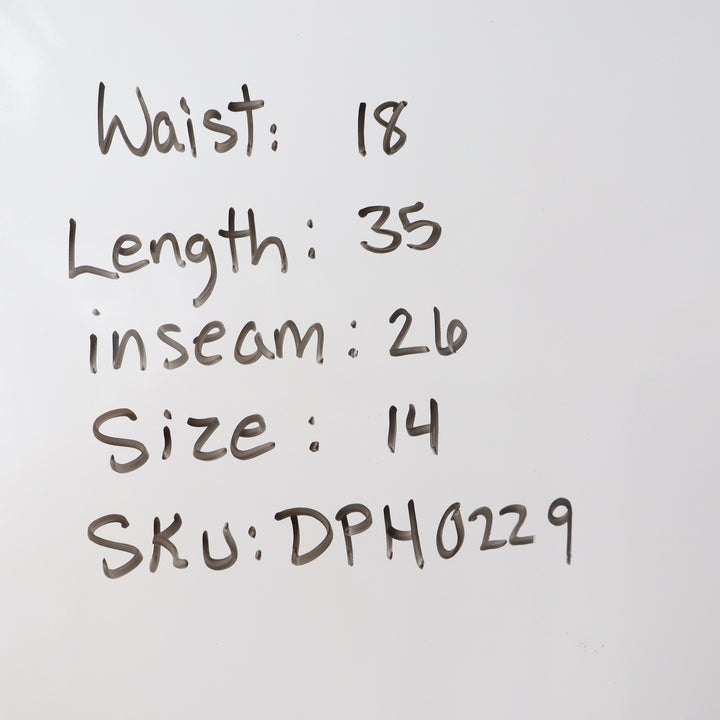 Waist: 18
Length: 35
inseam: 26
Size: 14
SKU: DPH0229